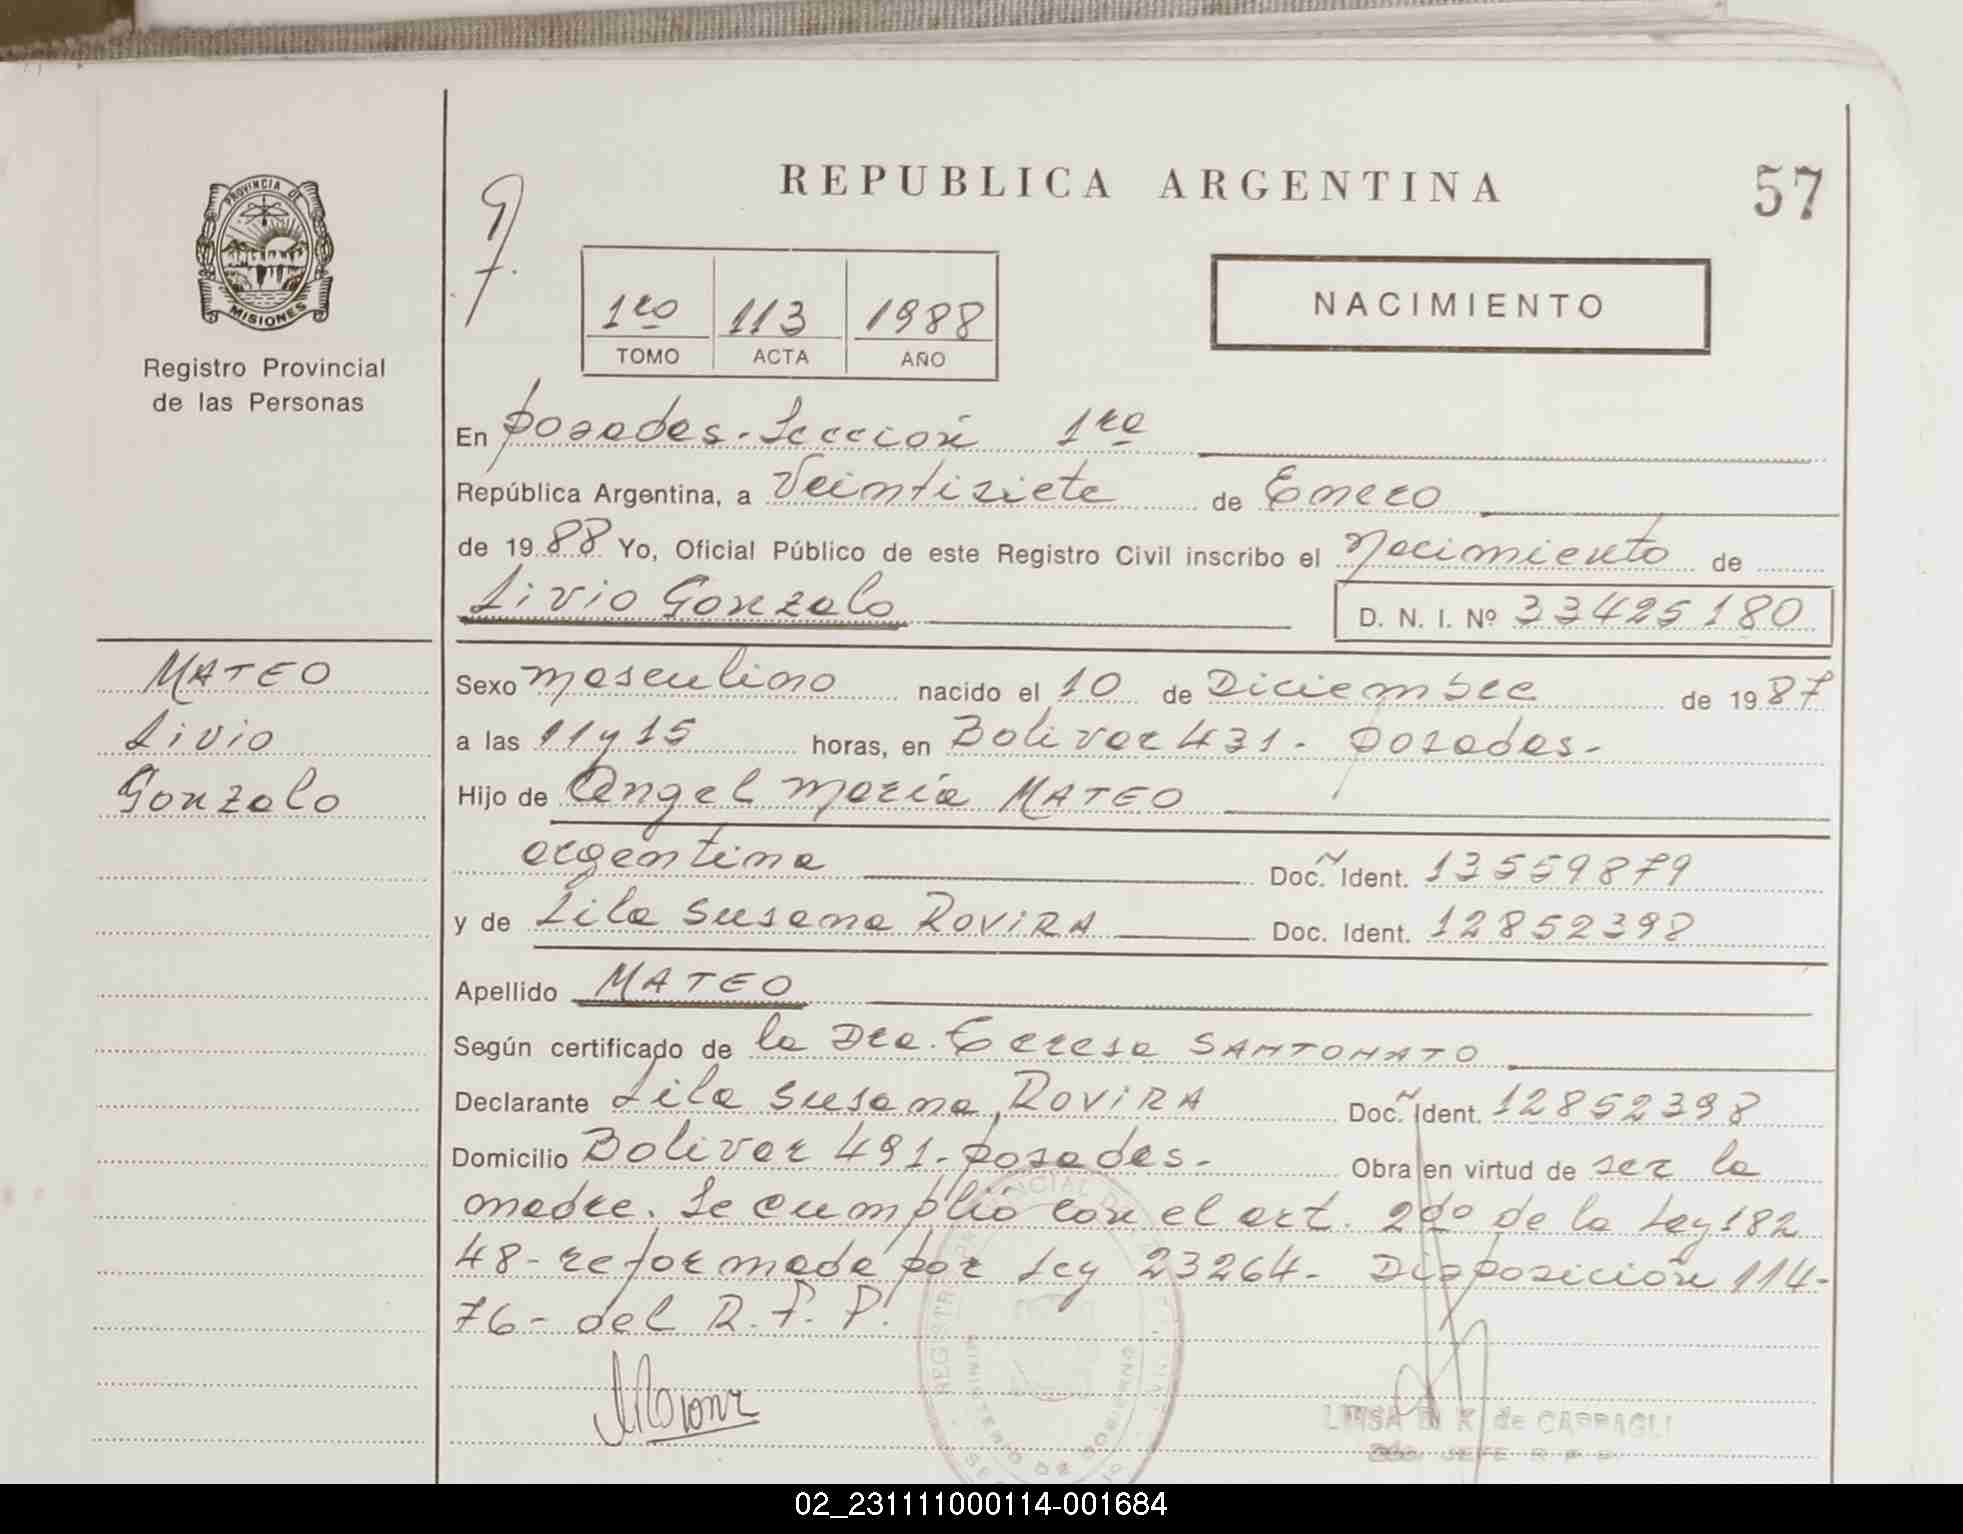 REPUBLICA ARGENTINA
57
PROVINCIA DE
MISIONES
Registro Provincial
de las Personas
1ro 113 1988
TOMO ACTA AÑO
NACIMIENTO
En posadas - Sección 1ra
República Argentina, a Veintisiete de Enero
de 1988 Yo, Oficial Público de este Registro Civil inscribo el Nacimiento de
Livio Gonzalo D. N. I. Nº 33425180
MATEO
Livio
Gonzalo
Sexo masculino nacido el 10 de Diciembre de 1987
a las 11 y 15 horas, en Bolivar 431 - posadas -
Hijo de Angel María MATEO
argentina Doc. Ident. 13559879
y de Lila Susana ROVIRA Doc. Ident. 12852398
Apellido MATEO
Según certificado de la Dra. Teresa SANTONATO
Declarante Lila Susana ROVIRA Doc. Ident. 12852398
Domicilio Bolivar 491 - posadas - Obra en virtud de ser la
madre. Se cumplió con el art. 2do de la Ley 182
48 - reformada por Ley 23264 - Disposición 114 -
76 - del R. P. P.
LUISA de CARPAGLI
JEFE R. P. P.
02_231111000114-001684